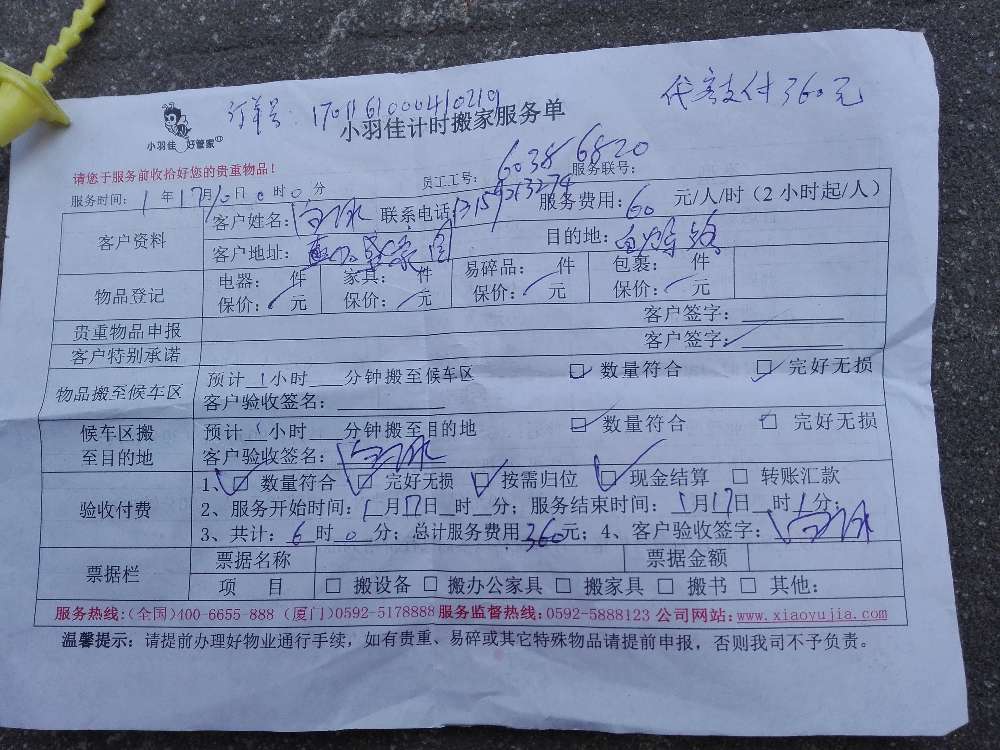 订单号: 1701161000410219
代客支付360元
小羽佳 好管家
小羽佳计时搬家服务单
请您于服务前收拾好您的贵重物品!
员工工号: 6038 6820 服务联号:
服务时间: 1年17月10日0时0分
客户资料
客户姓名: 联系电话: 服务费用: 60 元/人/时 (2 小时起/人)
客户地址: 目的地:
物品登记
电器: 件 家具: 件 易碎品: 件 包裹: 件
保价: 元 保价: 元 保价: 元 保价: 元
贵重物品申报 客户签字:
客户特别承诺 客户签字:
物品搬至候车区
预计 1小时 分钟搬至候车区 数量符合 完好无损
客户验收签名:
候车区搬至目的地
预计 小时 分钟搬至目的地 数量符合 完好无损
客户验收签名:
验收付费
1、 数量符合 完好无损 按需归位 现金结算 转账汇款
2、服务开始时间: 1月17日 时 分; 服务结束时间: 1月17日 时 分;
3、共计: 6时0分; 总计服务费用360元; 4、客户验收签字:
票据栏
票据名称 票据金额
项 目 搬设备 搬办公家具 搬家具 搬书 其他:
服务热线:(全国)400-6655-888 (厦门)0592-5178888 服务监督热线:0592-5888123 公司网站: www.xiaoyujia.com
温馨提示: 请提前办理好物业通行手续，如有贵重、易碎或其它特殊物品请提前申报，否则我司不予负责。